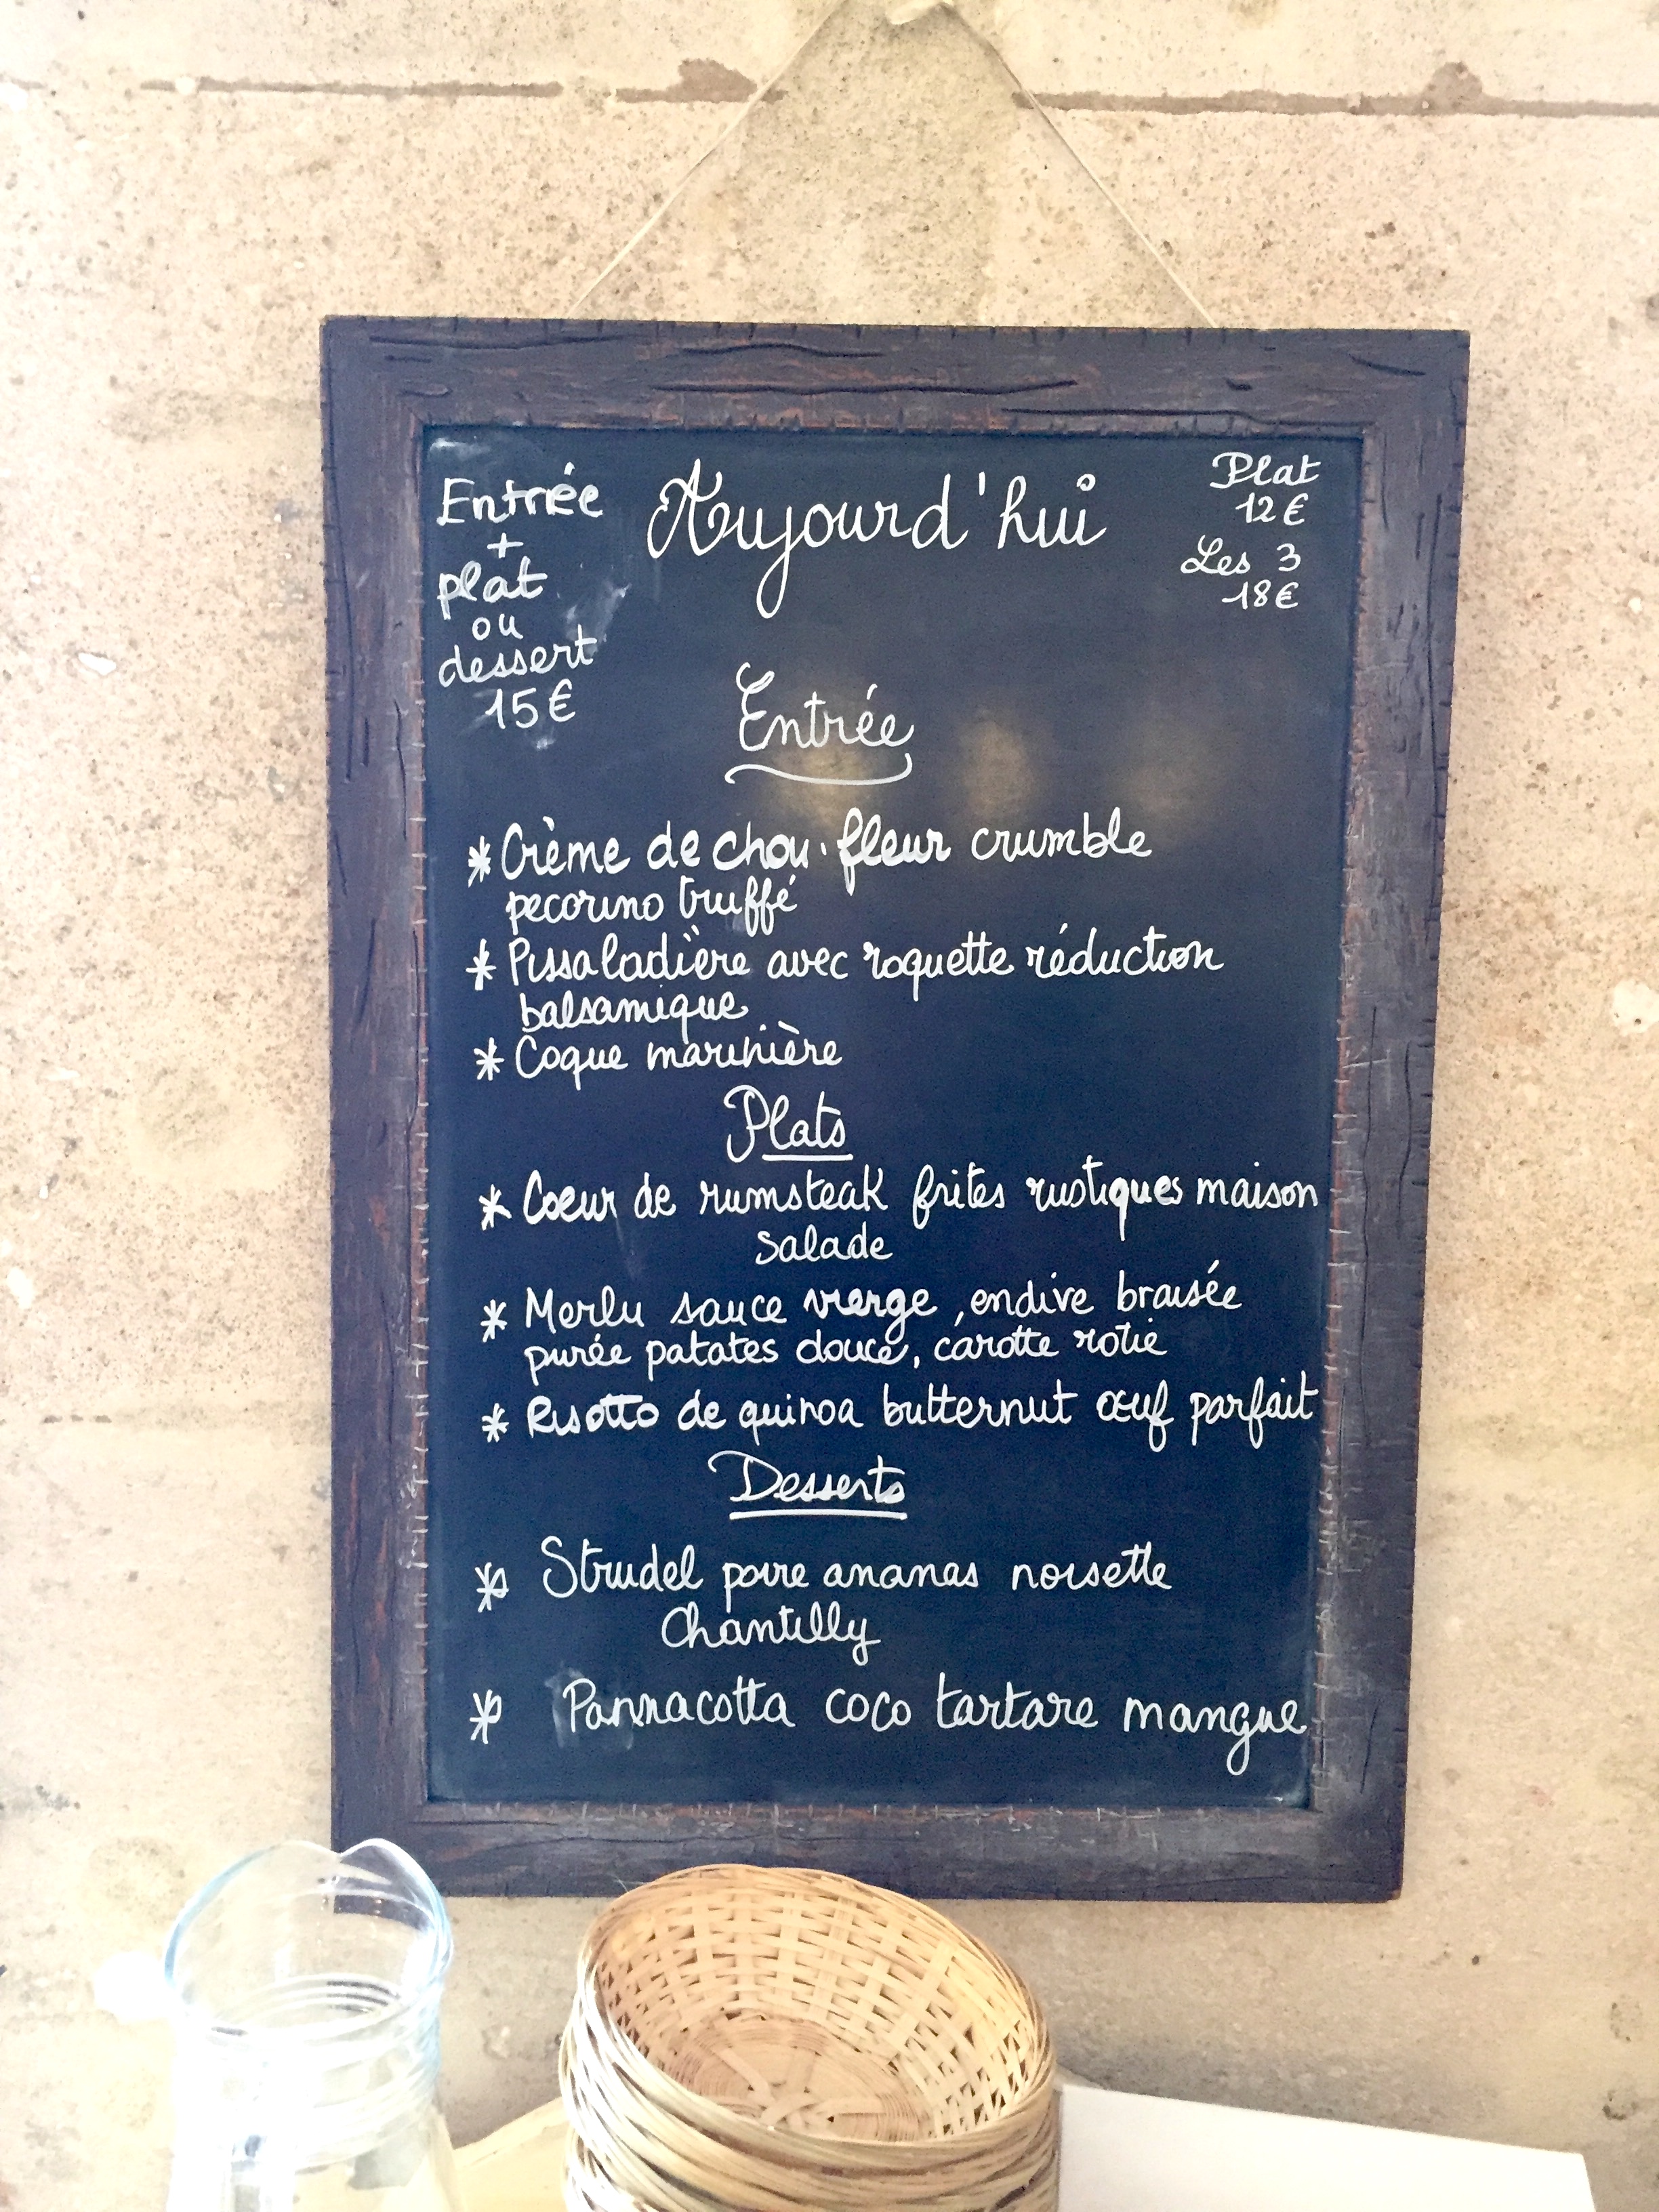 Aujourd'hui
Entrée
+
plat
ou
dessert
15€
Plat
12€
Les 3
18€
Entrée
* Crème de chou-fleur crumble
pecorino truffé
* Pissaladière avec roquette réduction
balsamique
* Coque marinière
Plats
* Coeur de rumsteak frites rustiques maison
salade
* Merlu sauce vierge, endive braisée
purée patates douce, carotte rotie
* Risotto de quinoa butternut œuf parfait
Desserts
* Strudel poire ananas noisette
Chantilly
* Pannacotta coco tartare mangue